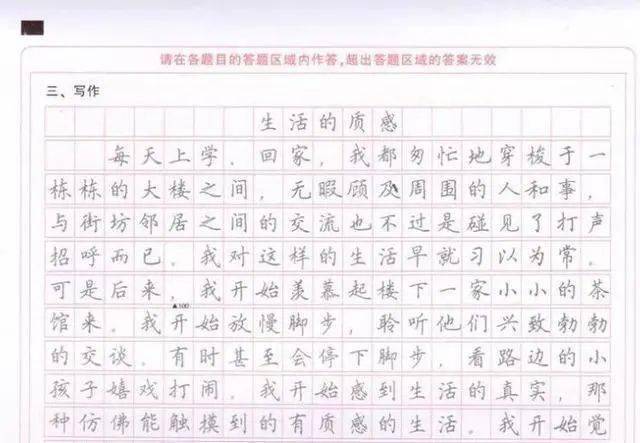 请在各题目的答题区域内作答,超出答题区域的答案无效
三、写作
生活的质感
每天上学、回家，我都匆忙地穿梭于一
栋栋的大楼之间，无暇顾及周围的人和事，
与街坊邻居之间的交流也不过是碰见了打声
招呼而已。我对这样的生活早就习以为常。
可是后来，我开始羡慕起楼下一家小小的茶
▲100
馆来。我开始放慢脚步，聆听他们兴致勃勃
的交谈。有时甚至会停下脚步，看路边的小
孩子嬉戏打闹。我开始感到生活的真实，那
种仿佛能触摸到的有质感的生活。我开始觉